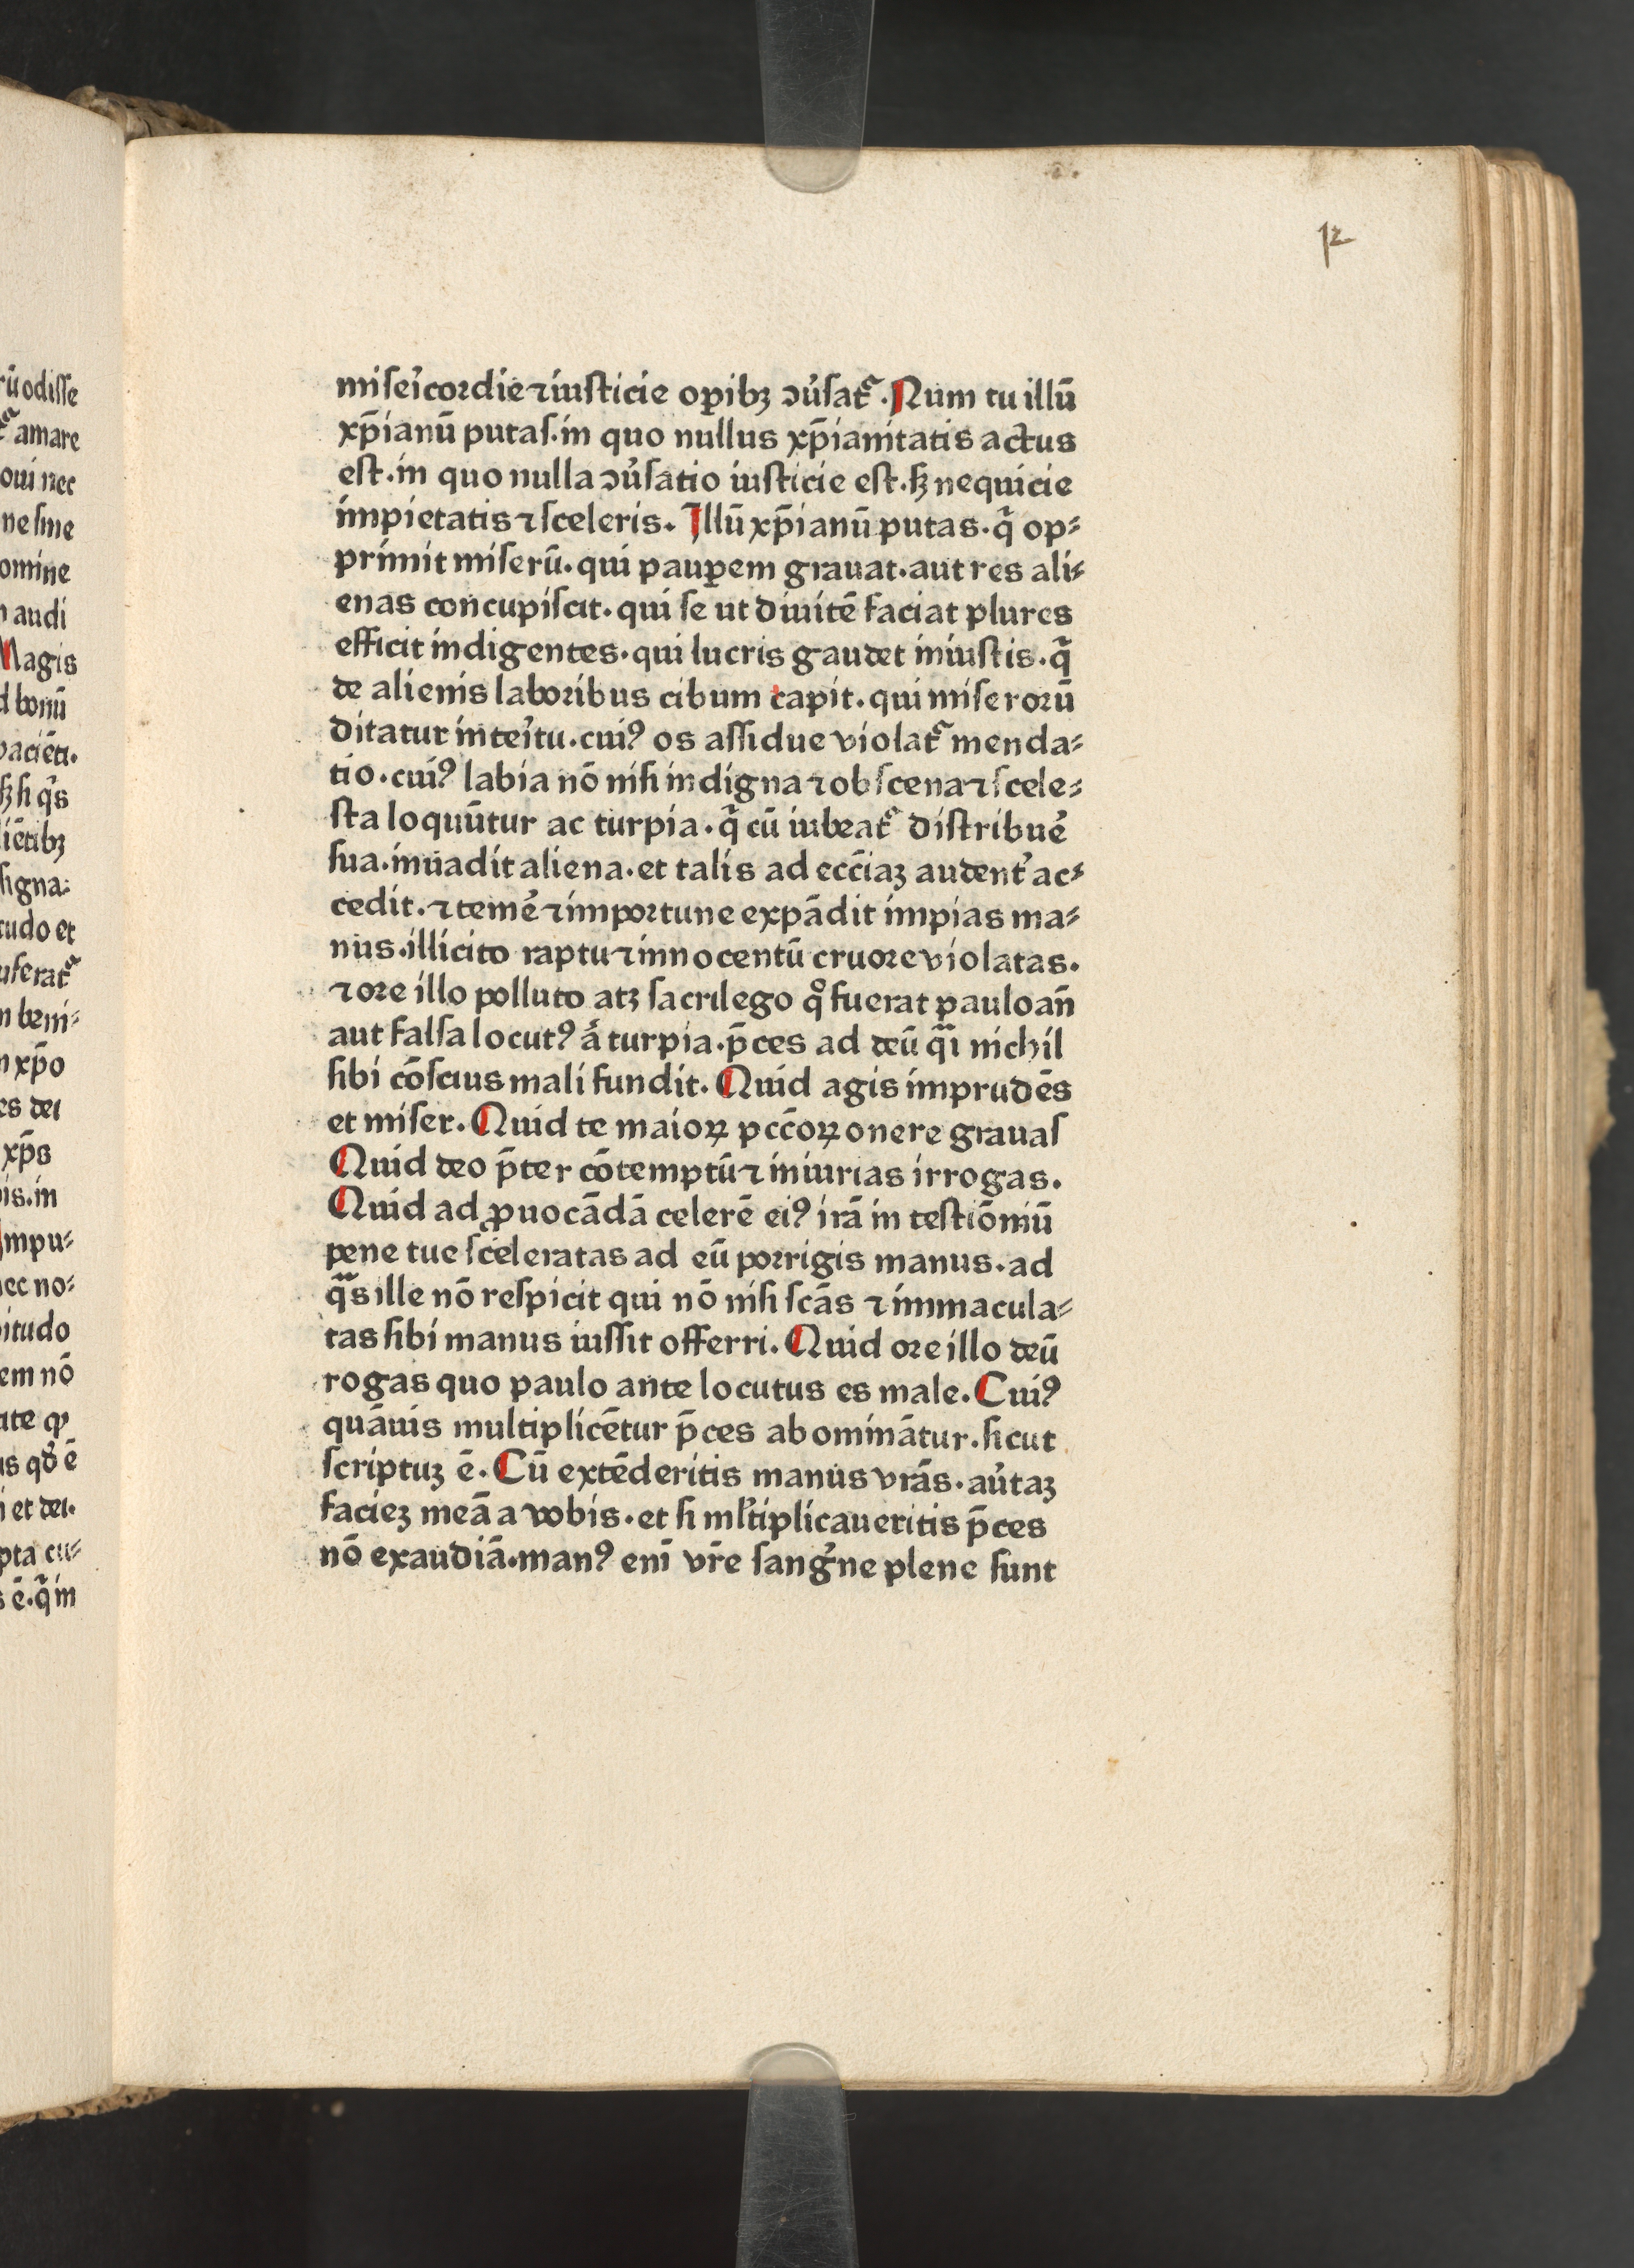 12
miſeícordie ⁊ iuſticie oꝑibꝫ ↄu̓ſat᷑. Num tu illū
xp̄ianū putaſ. in quo nullus xp̄ianitatis actus
eſt. in quo nulla ↄu̓ſatio iuſticie eſt. ſꝫ nequicie
impietatis ⁊ ſceleris. Illū xp̄ianū putas. q̄ op⸗
primit miſerū. qui pauꝑem grauat. aut res ali⸗
enas concupiſcit. qui ſe ut diuitē faciat plures
efficit indigentes. qui lucris gaudet iniuſtis. q̄
de alienis laboribus cibum capit. qui miſerorū
ditatur inteítu. cuiꝰ os aſſidue violat᷑ menda⸗
tio. cuiꝰ labia nō niſi indigna ⁊ obſcena ⁊ ſcele⸗
ſta loquūtur ac turpia. q̄ cū iubeat᷑ diſtribue̓
ſua. inuadit aliena. et talis ad eccīaꝫ audent̓ ac⸗
cedit. ⁊ teme̓ ⁊ importune expādit impias ma⸗
nus. illicito raptu ⁊ innocentū cruore violatas.
⁊ ore illo polluto atꝫ ſacrilego qͦ fuerat pauloan̄
aut falſa locutꝰ a̓ turpia. p̄ces ad deū qͣi nichil
ſibi cōſcius mali fundit. Quid agis imprudēs
et miſer. Quid te maioꝝ pcc̄oꝝ onere grauaſ
Quid deo p̄ter cōtemptū ⁊ iniurias irrogas.
Quid ad ꝓuocādā celerē eiꝰ irā in teſtiōniū
pene tue ſceleratas ad eū porrigis manus. ad
qͣs ille nō reſpicit qui nō niſi ſcās ⁊ immacula⸗
tas ſibi manus iuſſit offerri. Quid ore illo deū
rogas quo paulo ante locutus es male. Cuiꝰ
quāuis multiplicētur p̄ces abominātur. ſicut
ſcriptuꝫ ē. Cū extēderitis manus vrās. au̓taꝫ
facieꝫ meā a vobis. et ſi ml̓tiplicaueritis p̄ces
nō exaudiā. manꝰ enī vr̄e ſangͥne plene ſunt